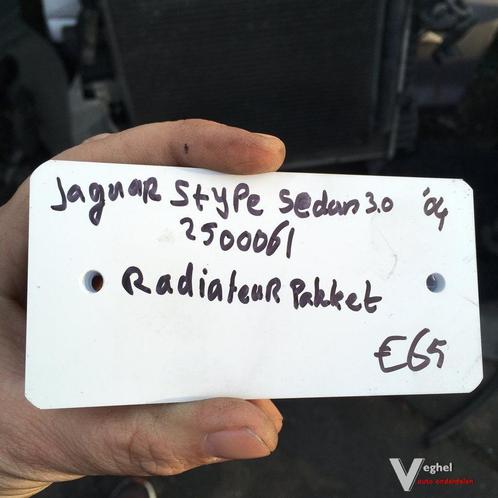 Jaguar Stype Sedan 3.0 '04
2500061
Radiateur Pakket
€65
Veghel
auto onderdelen